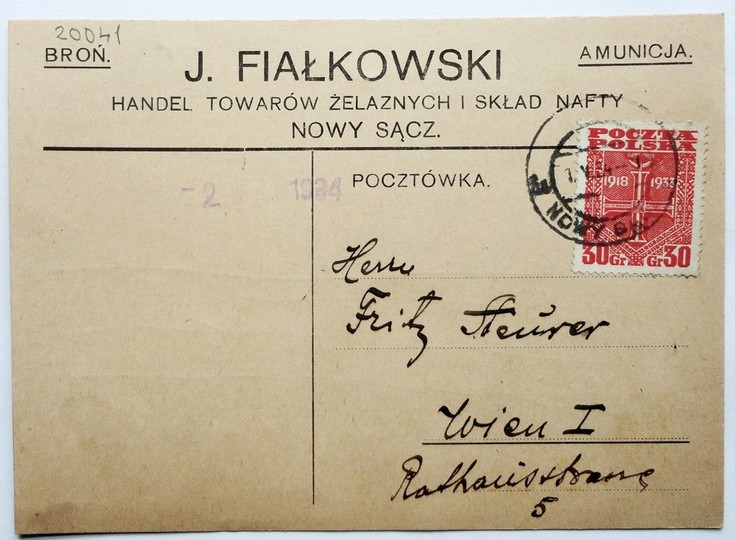 20041
BROŃ.
AMUNICJA.
J. FIAŁKOWSKI
HANDEL TOWARÓW ŻELAZNYCH I SKŁAD NAFTY
NOWY SĄCZ.
POCZTA
POLSKA
1918 1933
30 Gr Gr 30
NOWY
-2 1934
POCZTÓWKA.
Herrn
Fritz Steurer
Wien I
Rathausstrasse
5